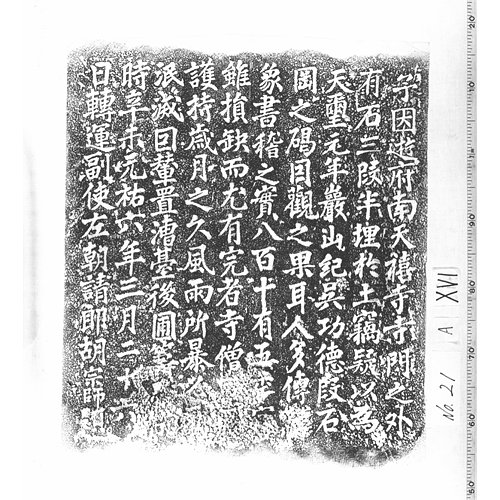 予因遊府南天禧寺寺門之外
有石三段半埋於土竊疑以為
天璽元年巖山紀吳功德段石
岡之碣目觀之果耳人多傳
象書稽之實八百十有五
雖損缺而尤有完者寺僧
護持歲月之久風雨所暴
泯滅因輦置漕臺後圃
時辛未元祐六年三月二十六
日轉運副使左朝請郎胡宗師
XVI
A
No. 21